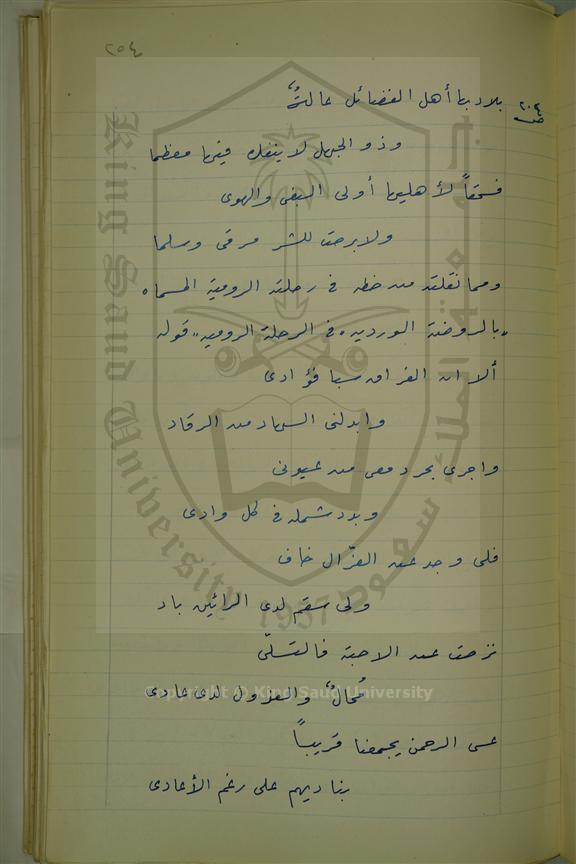 ٢٥٤
ص ٢٠٤
بلاد بها أهل الفضائل عالةٌ
وذو الجهل لا ينفك فيها معظما
فسحقاً لأهليها أولى البغى والهوى
ولا برحت للشر مرقى وسلما
ومما نقلته من خطه في رحلته الرومية المسماه
"بالروضة الوردية في الرحلة الرومية" قوله
ألا ان الفراق سبا فؤادى
وابدلنى السهاد من الرقاد
واجرى بحر دمعى من عيونى
وبدد شمله في كل وادى
فلى وجد عن العذّال خاف
ولى سقم لدى الرائين باد
نزحت عن الاحبة فالتسلّى
مُحالٌ والعذول لدى عادى
عسى الرحمن يجمعنا قريباً
بناديهم على رغم الأعادى
King Saud University
جامعة الملك سعود
1957
Copyright © King Saud University